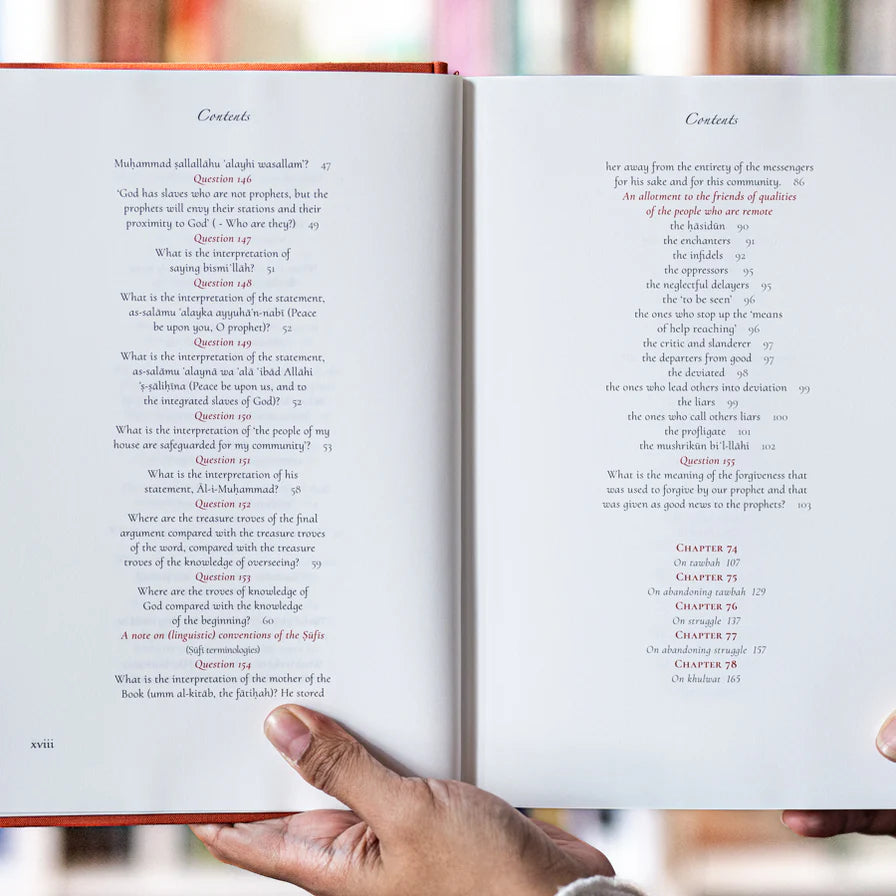 Contents
Muḥammad ṣallallāhu 'alayhi wasallam'? 47
Question 146
'God has slaves who are not prophets, but the
prophets will envy their stations and their
proximity to God' ( - Who are they?) 49
Question 147
What is the interpretation of
saying bismi'llāh? 51
Question 148
What is the interpretation of the statement,
as-salāmu 'alayka ayyuhā'n-nabī (Peace
be upon you, O prophet)? 52
Question 149
What is the interpretation of the statement,
as-salāmu 'alaynā wa 'alā 'ibād Allāhi
'ṣ-ṣāliḥīna (Peace be upon us, and to
the integrated slaves of God)? 52
Question 150
What is the interpretation of 'the people of my
house are safeguarded for my community'? 53
Question 151
What is the interpretation of his
statement, Āl-i-Muḥammad? 58
Question 152
Where are the treasure troves of the final
argument compared with the treasure troves
of the word, compared with the treasure
troves of the knowledge of overseeing? 59
Question 153
Where are the troves of knowledge of
God compared with the knowledge
of the beginning? 60
A note on (linguistic) conventions of the Ṣūfīs
(Ṣūfī terminologies)
Question 154
What is the interpretation of the mother of the
Book (umm al-kitāb, the fātiḥah)? He stored
xviii
Contents
her away from the entirety of the messengers
for his sake and for this community. 86
An allotment to the friends of qualities
of the people who are remote
the ḥāsidūn 90
the enchanters 91
the infidels 92
the oppressors 95
the neglectful delayers 95
the 'to be seen' 96
the ones who stop up the 'means
of help reaching' 96
the critic and slanderer 97
the departers from good 97
the deviated 98
the ones who lead others into deviation 99
the liars 99
the ones who call others liars 100
the profligate 101
the mushrikūn bi'l-llāhi 102
Question 155
What is the meaning of the forgiveness that
was used to forgive by our prophet and that
was given as good news to the prophets? 103
Chapter 74
On tawbah 107
Chapter 75
On abandoning tawbah 129
Chapter 76
On struggle 137
Chapter 77
On abandoning struggle 157
Chapter 78
On khulwat 165